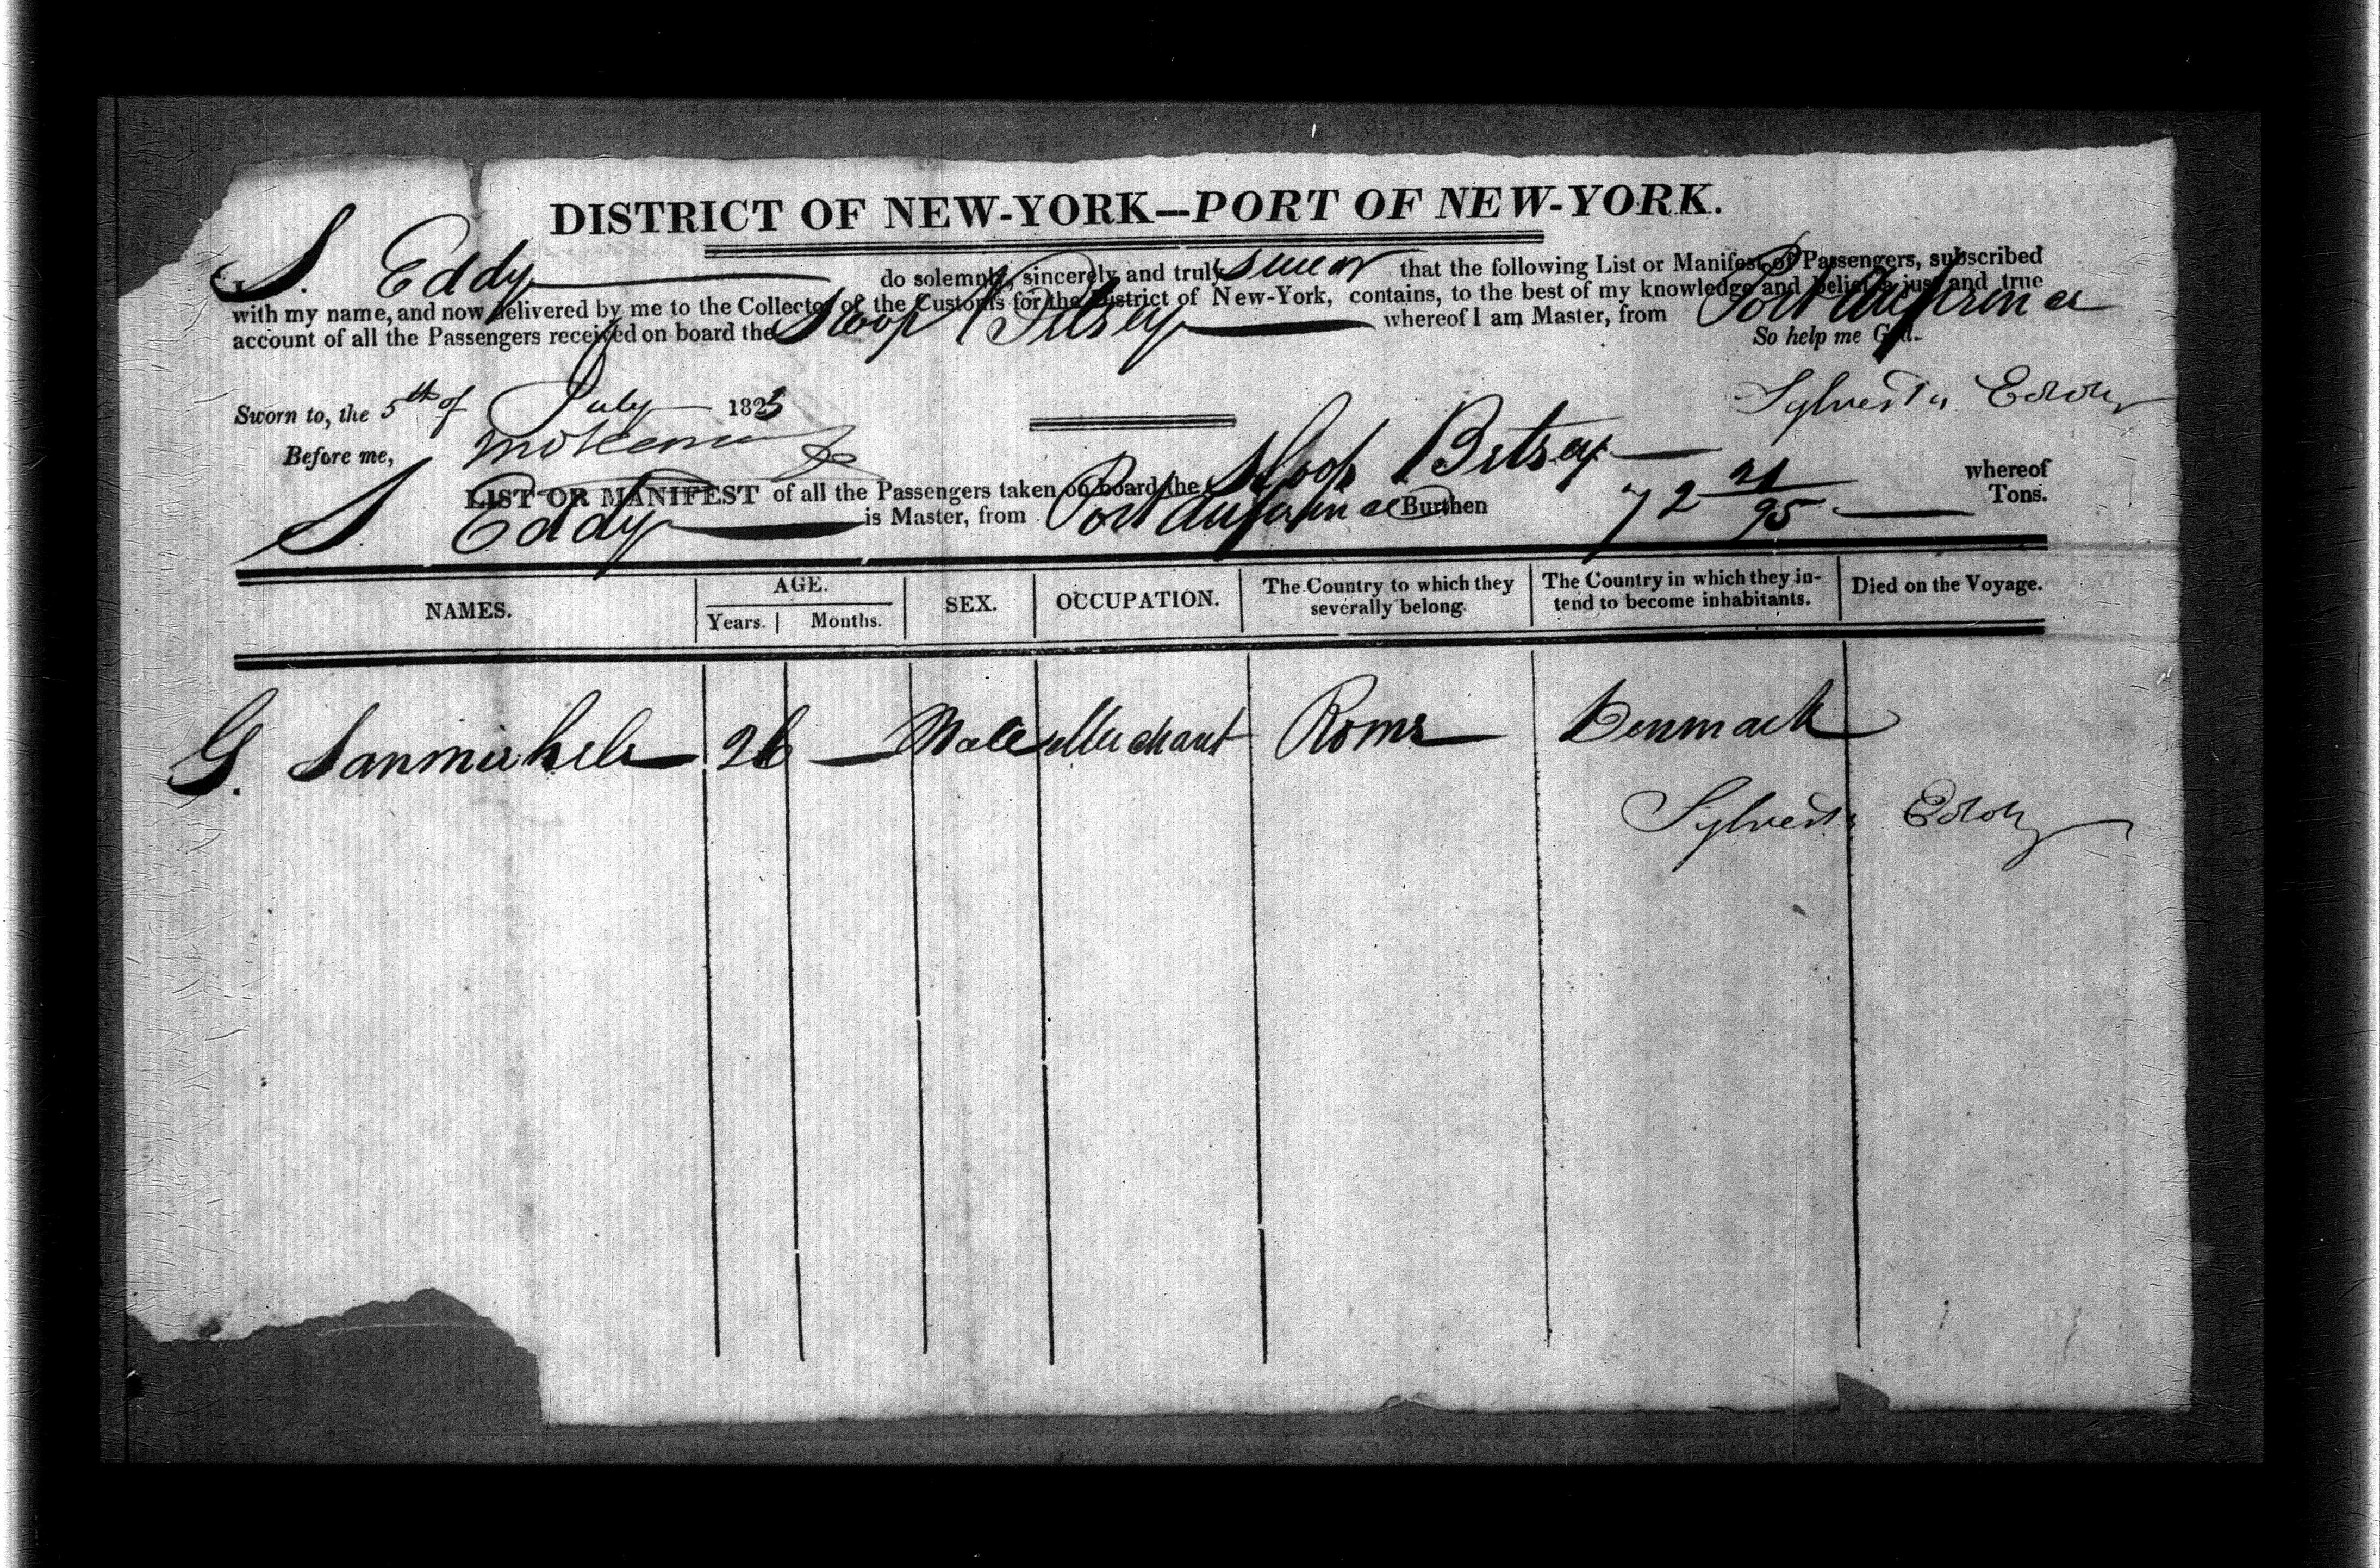 DISTRICT OF NEW-YORK—PORT OF NEW-YORK.
S. Eddy do solemnly, sincerely and truly swear that the following List or Manifest of Passengers, subscribed
with my name, and now delivered by me to the Collector of the Customs for the District of New-York, contains, to the best of my knowledge and belief, a just and true
account of all the Passengers received on board the Sloop Betsey whereof I am Master, from Port au prince
So help me God.
Sworn to, the 5th of July 1825
Sylvester Eddy
Before me,
LIST OR MANIFEST of all the Passengers taken on board the Sloop Betsey whereof
S. Eddy is Master, from Port au prince Burthen 72 21/95 Tons.
NAMES. AGE. SEX. OCCUPATION. The Country to which they severally belong. The Country in which they intend to become inhabitants. Died on the Voyage.
Years. Months.
G. Sanmichele 26 — Male Merchant Rome Denmark
Sylvester Eddy